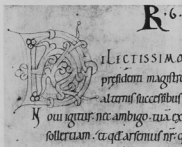 R·6·
D ILECTISSIMO
presidenti magistro
alternis successibus
Noui igitur nec ambigo tua ex
sollertiam et qd arsenius nr